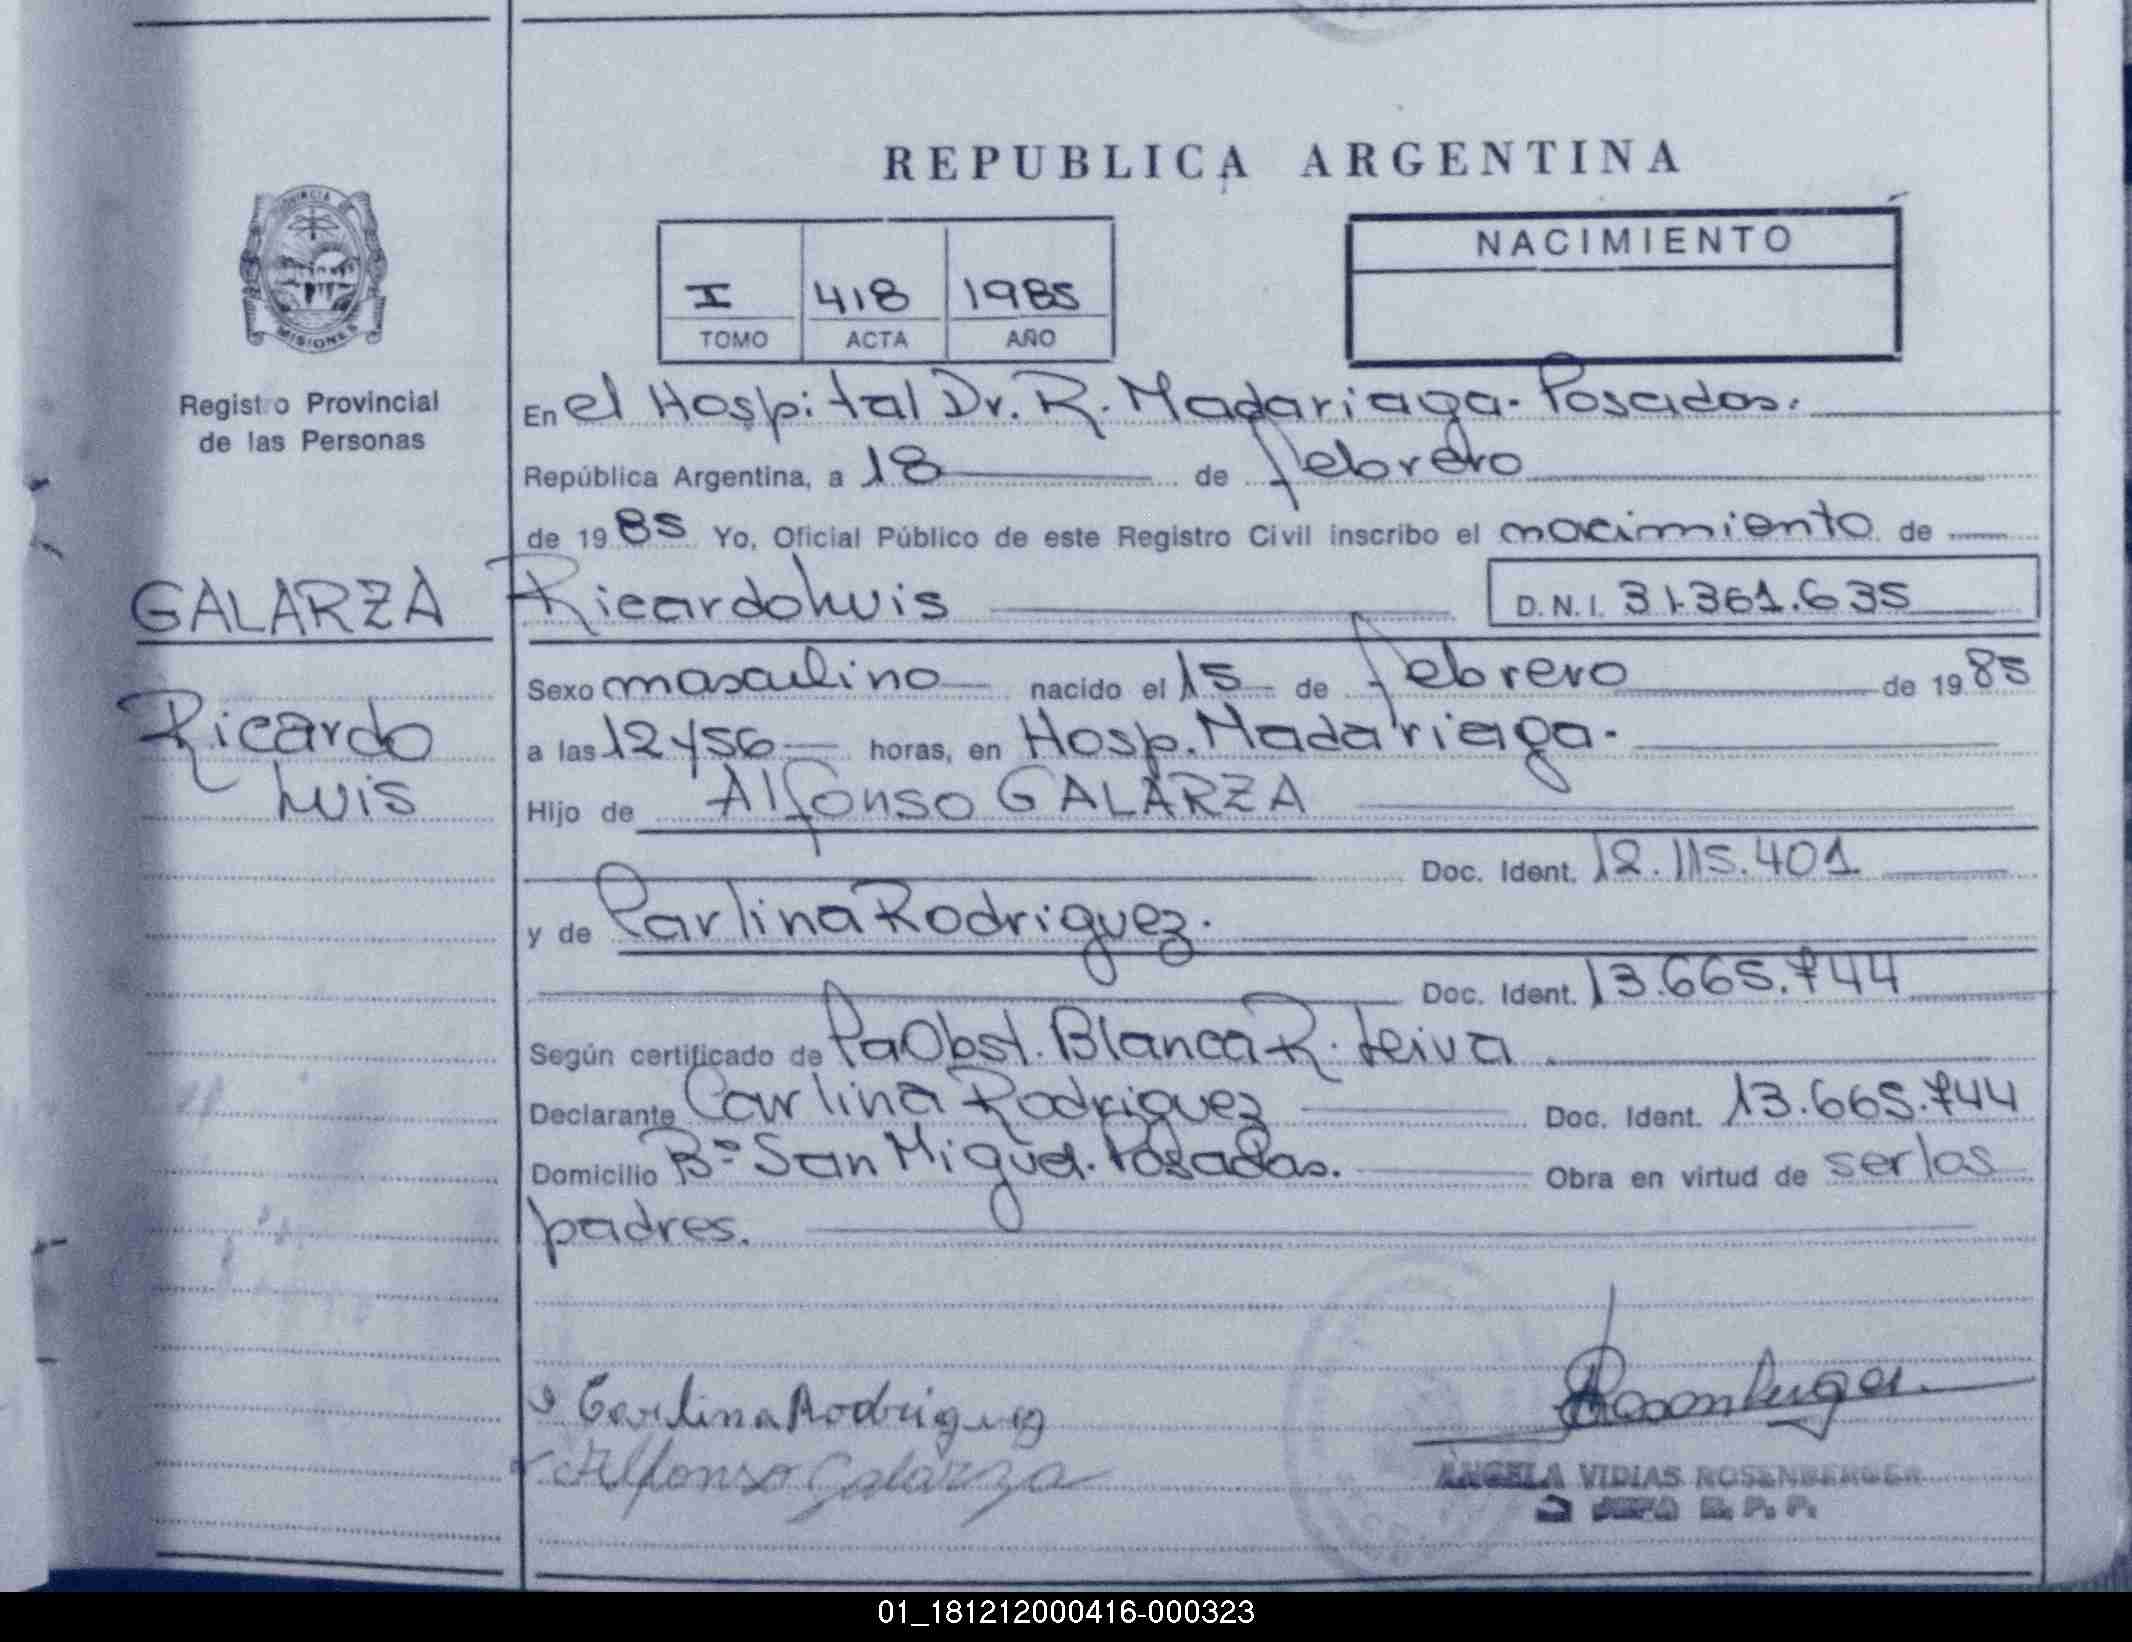 REPUBLICA ARGENTINA
PROVINCIA
MISIONES
Registro Provincial
de las Personas
I 418 1985
TOMO ACTA AÑO
NACIMIENTO
En el Hospital Dr. R. Madariaga. Posadas.
República Argentina, a 18 de febrero
de 1985 Yo, Oficial Público de este Registro Civil inscribo el nacimiento de
GALARZA
Ricardo Luis
Ricardo Luis D.N.I. 31.361.635
Sexo masculino nacido el 15 de febrero de 1985
a las 12 y 56 horas, en Hosp. Madariaga.
Hijo de Alfonso GALARZA
Doc. Ident. 12.115.401
y de Carlina Rodriguez.
Doc. Ident. 13.665.744
Según certificado de Pa Obst. Blanca R. Leiva
Declarante Carlina Rodriguez Doc. Ident. 13.665.744
Domicilio Bº San Miguel. Posadas. Obra en virtud de ser los
padres.
Carlina Rodriguez
Alfonso Galarza
Rosenberger
ANGELA VIDIAS ROSENBERGER
01_181212000416-000323